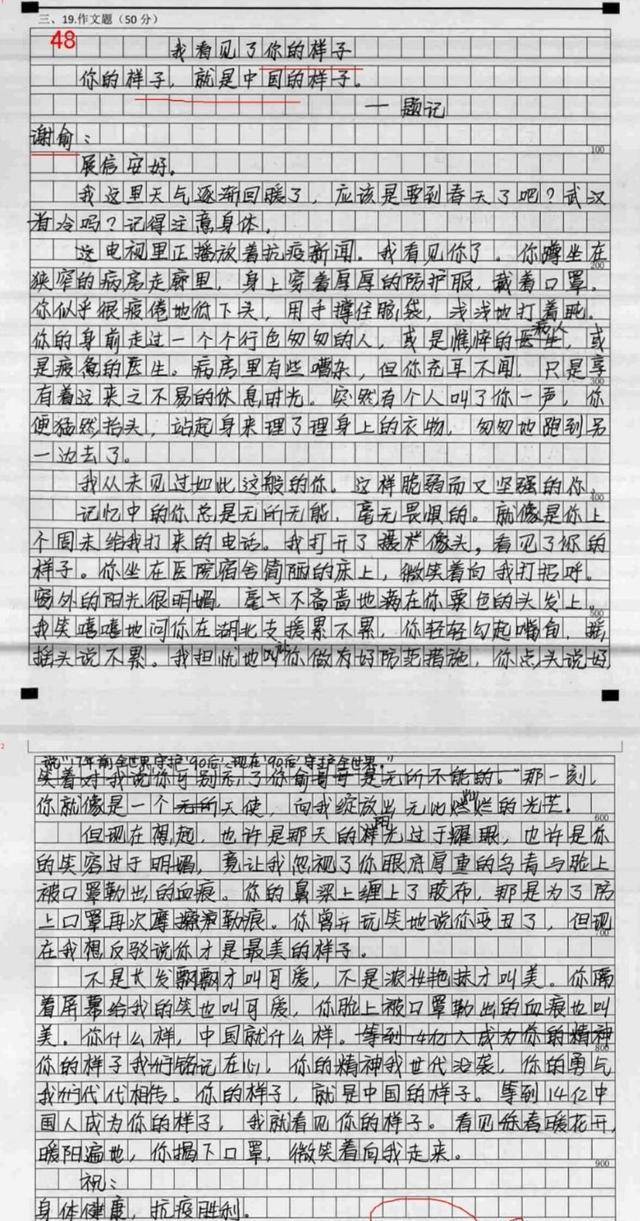 三、19.作文题(50分)
48
我看见了你的样子
你的样子,就是中国的样子。
—题记
谢俞:
100
展信安好。
我这里天气逐渐回暖了,应该是要到春天了吧?武汉
还冷吗?记得注意身体。
这电视里正播放着抗疫新闻。我看见你了。你蹲坐在
200
狭窄的病房走廊里,身上穿着厚厚的防护服,戴着口罩。
你似乎很疲倦地低下头,用手撑住脑袋,浅浅地打着盹。
你的身前走过一个个行色匆匆的人,或是憔悴的病人,或
是疲惫的医生。病房里有些嘈杂,但你充耳不闻,只是享
300
有着这来之不易的休息时光。突然有个人叫了你一声,你
便猛然抬头,站起身来理了理身上的衣物,匆匆地跑到另
一边去了。
我从未见过如此这般的你。这样脆弱而又坚强的你。
400
记忆中的你总是无所无能,毫无畏惧的。就像是你上
个周末给我打来的电话。我打开了摄像头,看见了你的
样子。你坐在医院宿舍简陋的床上,微笑着向我打招呼。
窗外的阳光很明媚,毫不吝啬地洒在你栗色的头发上。
500
我笑嘻嘻地问你在湖北支援累不累,你轻轻勾起嘴角,摇
摇头说不累。我担忧地叫你做有好防范措施,你点头说好
说"17年前全世界守护'90后',现在'90后'守护全世界。"
笑着对我说你可别忘了你俞哥哥是无所不能的。"那一刻,
你就像是一个天使,向我绽放出无比灿烂的光芒。
600
但现在想起,也许是那天的阳光过于耀眼,也许是你
的笑容过于明媚,竟让我忽视了你眼底厚重的乌青与脸上
被口罩勒出的血痕。你的鼻梁上缠上了胶布,那是为了防
上口罩再次摩擦勒痕。你曾开玩笑地说你变丑了,但现
700
在我想反驳说你才是最美的样子。
不是长发飘飘才叫可爱,不是浓妆艳抹才叫美。你隔
着屏幕给我的笑也叫可爱,你脸上被口罩勒出的血痕也叫
美。你什么样,中国就什么样。等到14亿人成为你的精神
800
你的样子我们铭记在心,你的精神我世代沿袭,你的勇气
我们代代相传。你的样子,就是中国的样子。等到14亿中
国人成为你的样子,我就看见你的样子。看见你春暖花开,
暖阳遍地,你揭下口罩,微笑着向我走来。
900
祝:
身体健康,抗疫胜利。